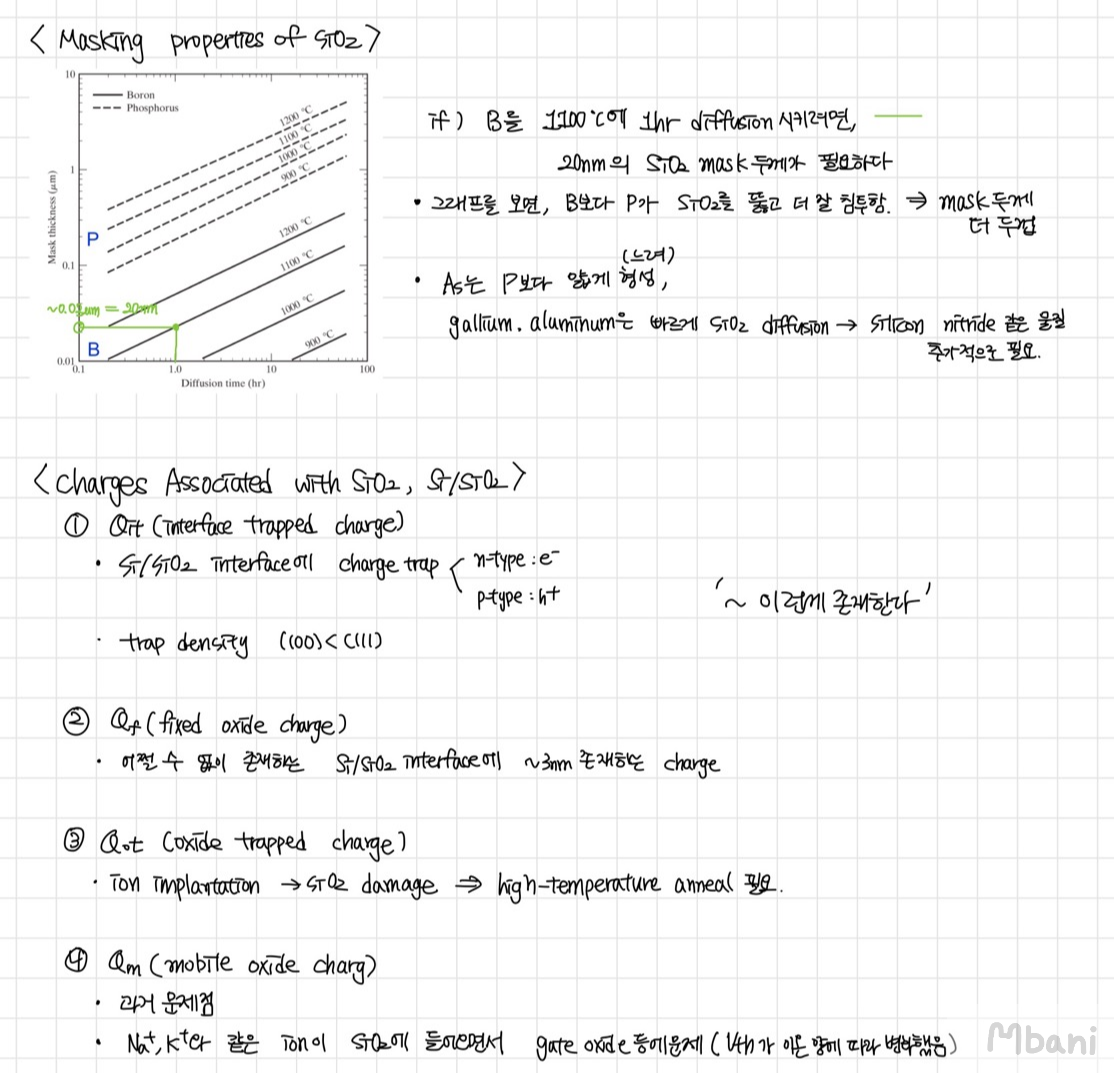 < Masking properties of SiO2 >
10
Boron
Phosphorus
1200 °C
1100 °C
1000 °C
900 °C
1
Mask thickness (μm)
P
1200 °C
0.1
1100 °C
~0.02um = 20nm
1000 °C
B
900 °C
0.01
0.1
1.0
10
100
Diffusion time (hr)
if) B를 1100℃에 1hr diffusion 시키려면,
20nm의 SiO2 mask 두께가 필요하다
• 그래프를 보면, B보다 P가 SiO2를 뚫고 더 잘 침투함. ⇒ mask 두께
더 두껍
(느려)
• As는 P보다 얇게 형성,
gallium. aluminum은 빠르게 SiO2 diffusion → silicon nitride 같은 물질
추가적으로 필요.
< Charges Associated with SiO2, Si/SiO2 >
① Qit (interface trapped charge)
• Si/SiO2 interface에 charge trap
n-type : e-
p-type : h+
'~ 이런게 존재한다'
• trap density (100) < (111)
② Qf (fixed oxide charge)
• 어쩔 수 없이 존재하는 Si/SiO2 interface에 ~3nm 존재하는 charge
③ Qot (oxide trapped charge)
• ion implantation → SiO2 damage ⇒ high-temperature anneal 필요.
④ Qm (mobile oxide charg)
• 과거 문제점
• Na+, K+와 같은 ion이 SiO2에 들어오면서 gate oxide 등에 문제 ( Vth가 이온 양에 따라 변화했음 )
Mbani